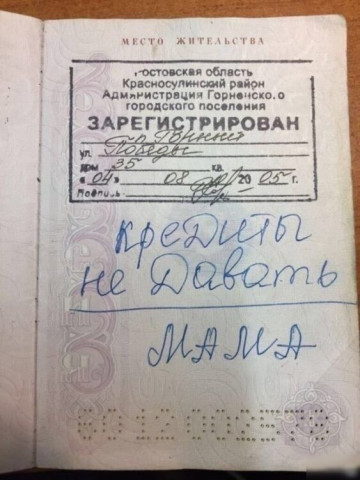 МЕСТО ЖИТЕЛЬСТВА
Ростовская область
Красносулинский район
Администрация Горненского
городского поселения
ЗАРЕГИСТРИРОВАН
ул. Победы
дом 35 кв.
«04» 08 2005 г.
Подпись
кредиты
не давать
МАМА